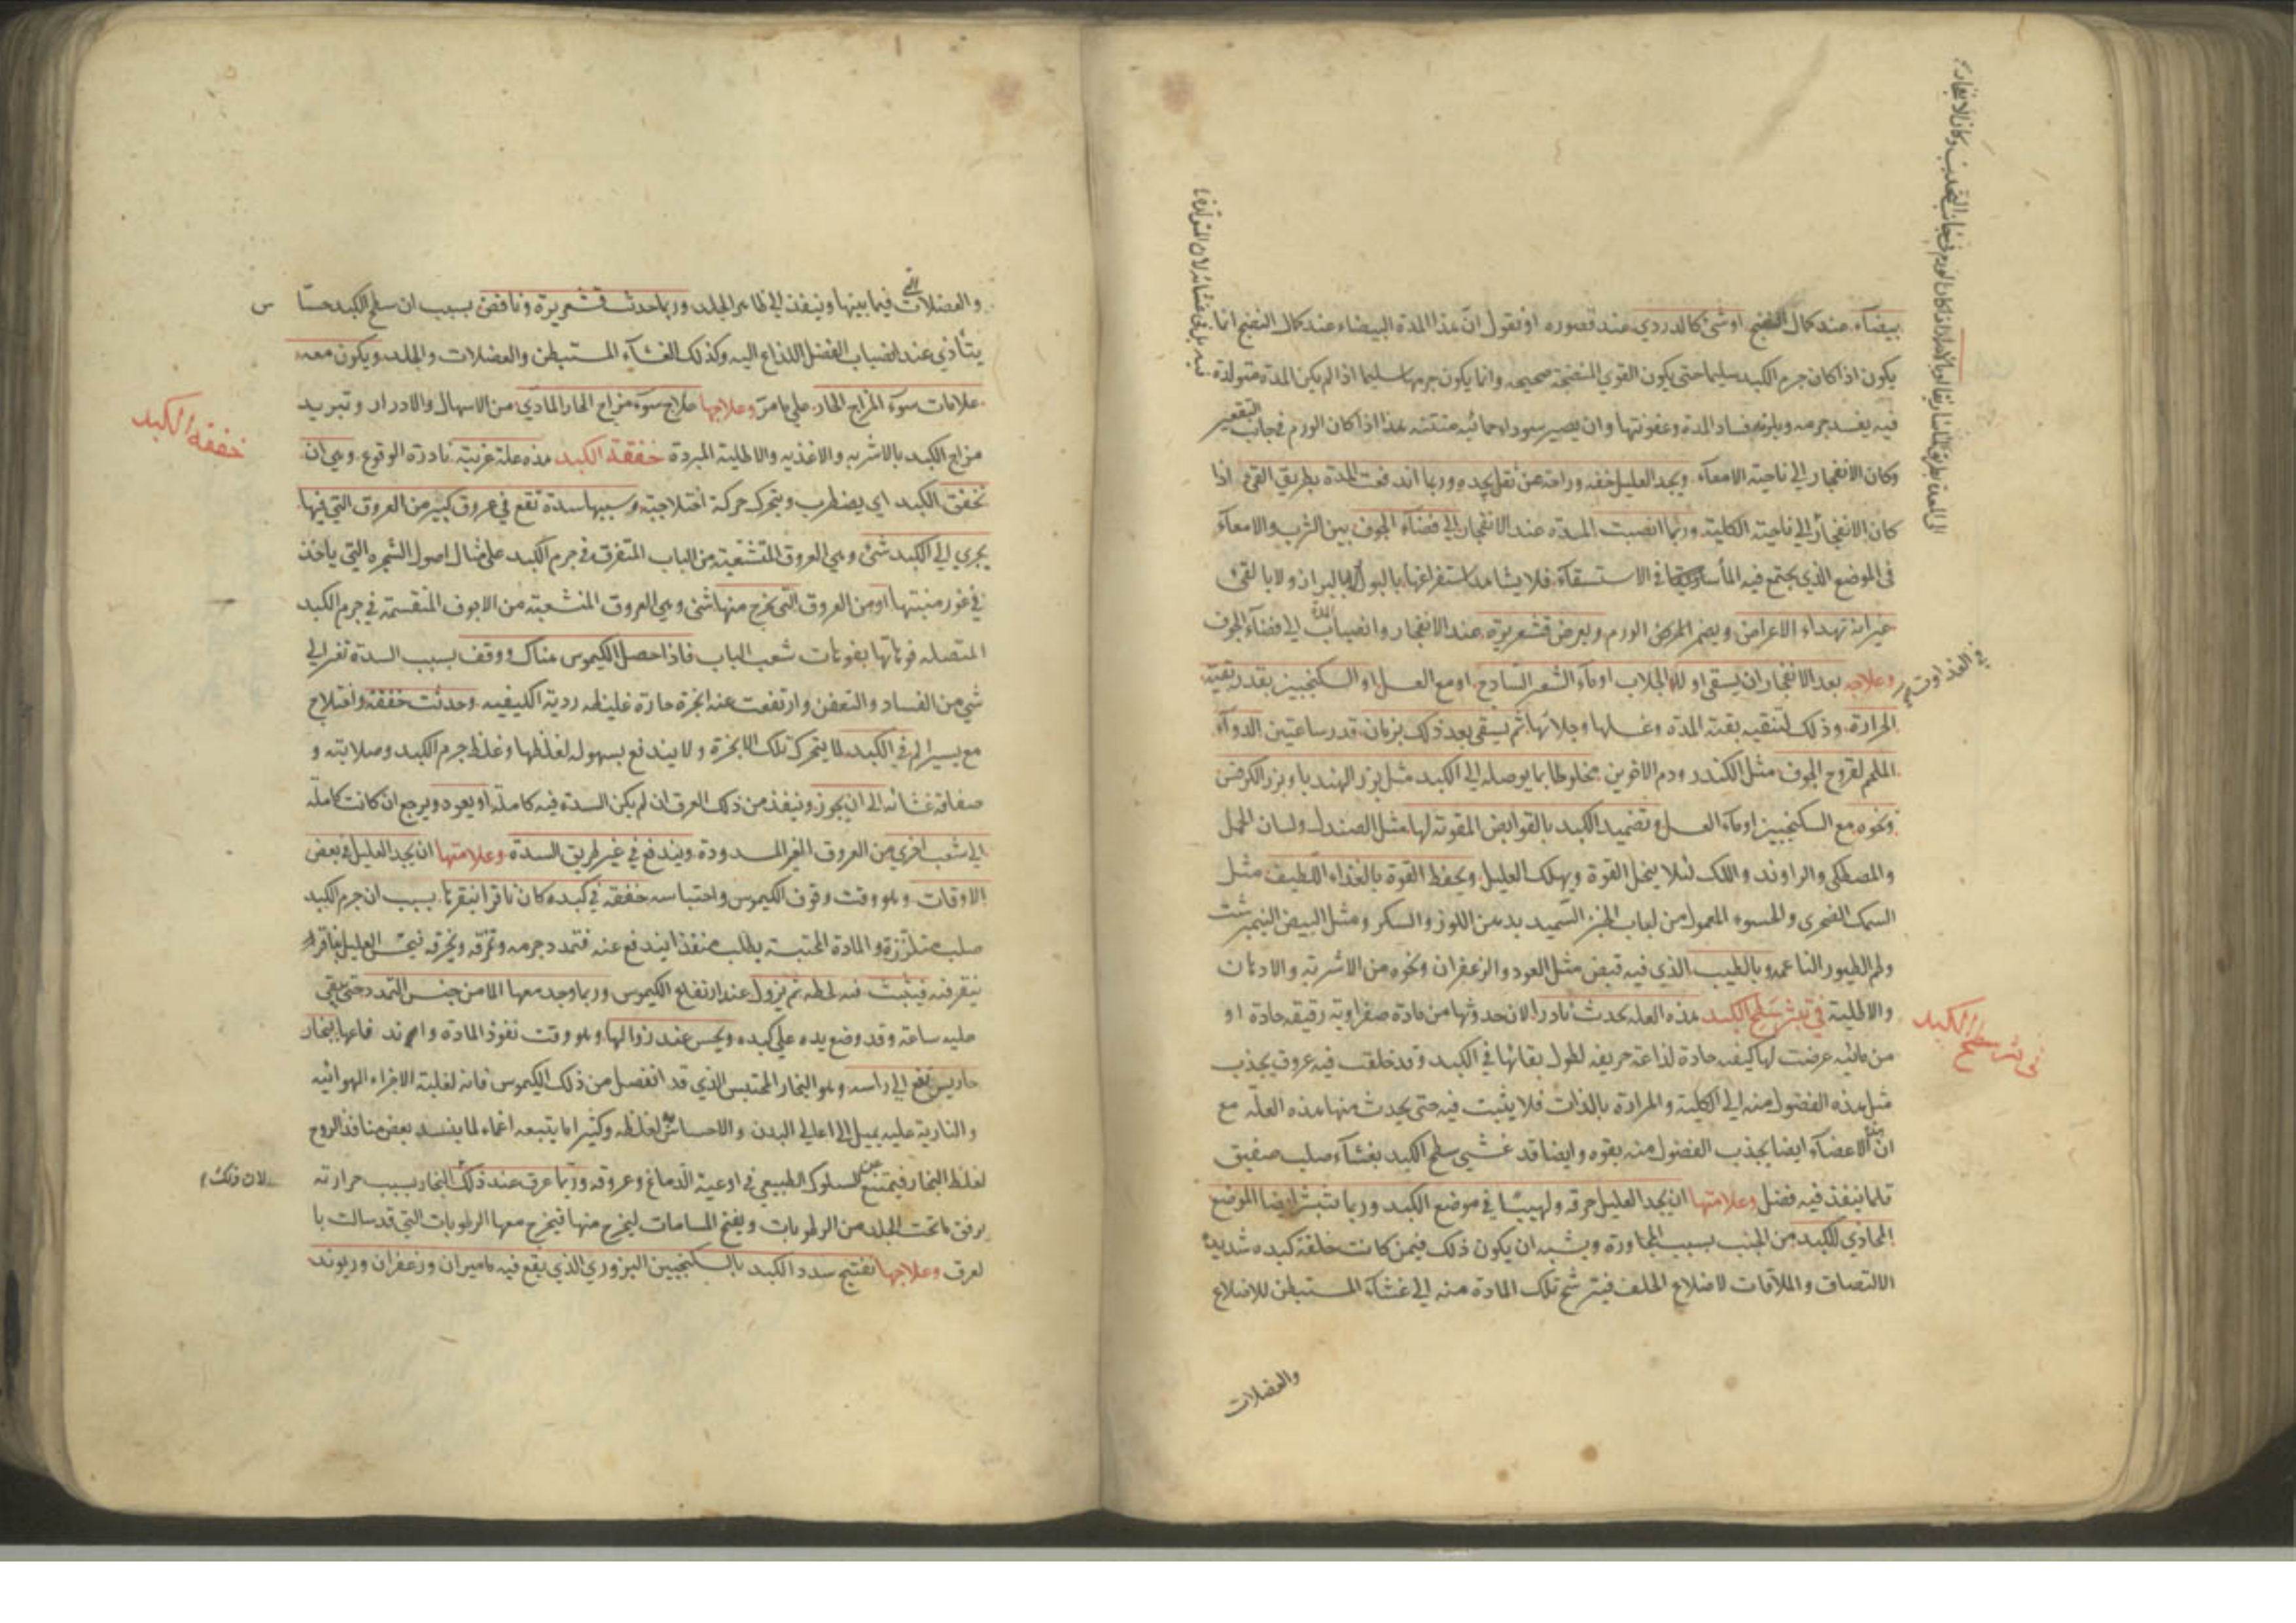 بيضآء عند كمال النضج او شئ كالدردي عند قصوره او نقول انّ هذا المدة البيضاء عند كمال النضج انما
يكون اذا كان جرم الكبد سليما حتى يكون القوي المنضجة صحيحه وانما يكون جرمها سليما اذا لم يكن المدة متولدة
فيه يفسد جرمه ويلزمه فساد المدة وعفونتها وان يصير سودا حمائيه منتنه هذا اذا كان الورم في جانب التقعير
وكان الانفجار الي ناحية الامعآء ويجد العليل خفه وراحة عن ثقل يجده وربما اندفعت المدة بطريق القئ اذا
كان الانفجار الي ناحية الكلية وربما انصبت المدة عند الانفجار الي فضآء الجوف بين الثرب والامعآء
في الموضع الذي يجتمع فيه المآء في الاستسقآء فلا يشاهد استفراغها بالبول ولا بالبراز ولا بالقئ
غير انه تهداء الاعراض ويضمر الورم ويعرض قشعريرة عند الانفجار وانصباب المدة الي فضآء الجوف
وعلاجه بعد الانفجار ان يسقي اولا الجلاب او مآء الشعير السّاذج او مع العسل او السكنجبين بقدر بقية
الحرارة وذلك لتنقيه بقية المدة وغسلها وجلائها ثم يسقي بعد ذلك بزمان قدر ساعتين الدوآء
الملحم لقروح الجوف مثل الكندر ودم الاخوين مخلوطا بما يوصله الي الكبد مثل بزر الهندبا وبزر الكرفس
ونحوه مع السكنجبين او مآء العسل وتضميد الكبد بالقوابض المقوية لها مثل الصندل ولسان الحمل
والمصطكي والراوند واللك لئلا ينحل القوة ويهلك العليل ويحفظ القوة بالغذاء اللطيف مثل
السمك الصخري والحسوء المعمول من لباب الخبز السّميد بدهن اللوز والسكر ومثل البيض النيمبرشت
ولحم الطيور الناعمه وبالطيب الذي فيه قبض مثل العود والزعفران ونحوه من الاشربة والادهان
والاطلية في بثر سطح الكبد هذه العله يحدث نادرا لان حدوثها من مادة صفراوية رقيقه حادة او
من مائيه عرضت لها كيفيه حادة لذاعة حريفه لطول بقائها في الكبد وقد خلقت فيه عروق يجذب
مثل هذه الفضول منه الي الكلية والمرارة بالذات فلا يثبت فيه حتى يحدث منها هذه العلّه مع
ان هذه الاعضآء ايضا يجذب الفضول منه بقوه وايضا قد غشي سطح الكبد بغشآء صلب صفيق
قلما ينفذ فيه فضل وعلامتها ان يجد العليل حرقه ولهيبًا في موضع الكبد وربما تبثر ايضا الموضع
المحاذي للكبد من الجنب بسبب المجاورة ويشبه ان يكون ذلك فيمن كانت خلقة كبده شديدة
الالتصاق والملاقات لاضلاع الخلف فيترشح تلك المادة منه الي غشآء المستبطن للاضلاع
والعضلات
في بثر سطح الكبد
والعضلات التي فيما بينها وينفذ الي ظاهر الجلد وربما حدث قشعريرة ونافض بسبب ان سطح الكبد حسّا س
يتأذي عند انصباب الفضل اللذاع اليه وكذلك الغشآء المستبطن والعضلات والجلد ويكون معه
علامات سوء المزاج الحار علي ما مرّ وعلاجها علاج سوء مزاج الحار المادي من الاسهال والادرار وتبريد
مزاج الكبد بالاشربه والاغذيه والاطلية المبردة خفقة الكبد هذه علة غريبة نادرة الوقوع وهي ان
تخفق الكبد اي يضطرب ويتحرك حركة اختلاجية وسببها سدة تقع في عروق كبير من العروق التي فيها
يجري الي الكبد شئ وهي العروق المتشعبة من الباب المتفرق في جرم الكبد علي مثال اصول الشجره التي ياخذ
في غور منبتها او من العروق التي يخرج منها شئ وهي العروق المنشعبة من الاجوف المنقسمة في جرم الكبد
المتصله فوهاتها بفوهات شعب الباب فاذا حصل الكيموس هناك ووقف بسبب السدة تغير الي
شي من الفساد والتعفن وارتفعت عنه ابخرة حارة غليظه ردية الكيفيه وحدثت خفقة واختلاج
مع يسير الم في الكبد لما يتحرك تلك الابخرة ولا يندفع بسهوله لغلظها وغلظ جرم الكبد وصلابته و
صفاقة غشائه الي ان يجوز وينفذ من ذلك العرق ان لم يكن السدة فيه كاملة او يعود ويرجع ان كانت كاملة
الي شعب اخري من العروق الغير المسدودة ويندفع في غير طريق السدة وعلامتها ان يجد العليل في بعض
الاوقات وهو وقت وقوف الكيموس واحتباسه خفقة في كبده كان ناقرا ينقرها بسبب ان جرم الكبد
صلب متلزّزة والمادة المحتبسة يطلب منفذا يندفع عنه فتمدد جرمه وتمزّقه ويخرقه فيحس العليل بناقر
ينقر فيه فيثبت فيه لحظه ثم يزول عند ارتفاع الكيموس وربما وجد معها الما من جنس التمدد حتى يبقي
عليه ساعة وقد وضع يده علي كبده ويحس عند زوالها وهو وقت نفوذ المادة واندفاعها ببخار
حار يرتفع الي راسه وهو البخار المحتبس الذي قد انفصل من ذلك الكيموس فانه لغلبة الاجزاء الهوائيه
والنارية عليه يميل الي اعالي البدن والاحساس به لغلظه وكثيرا ما يتبعه اغماء لما ينسد بعض منافذ الروح
لغلظ البخار فيمتنع عن السلوك الطبيعي في اوعية الدّماغ وعروقه وربّما عرق عند ذلك لان ذلك البخار بسبب حرارته
يرقق ما تحت الجلد من الرطوبات ويفتح المسامات ليخرج منها فيخرج معها الرطوبات التي قد سالت با
لعرق وعلاجها تفتيح سدد الكبد بالسكنجبين البزوري الذي يقع فيه ماميران وزعفران وريوند
خفقة الكبد